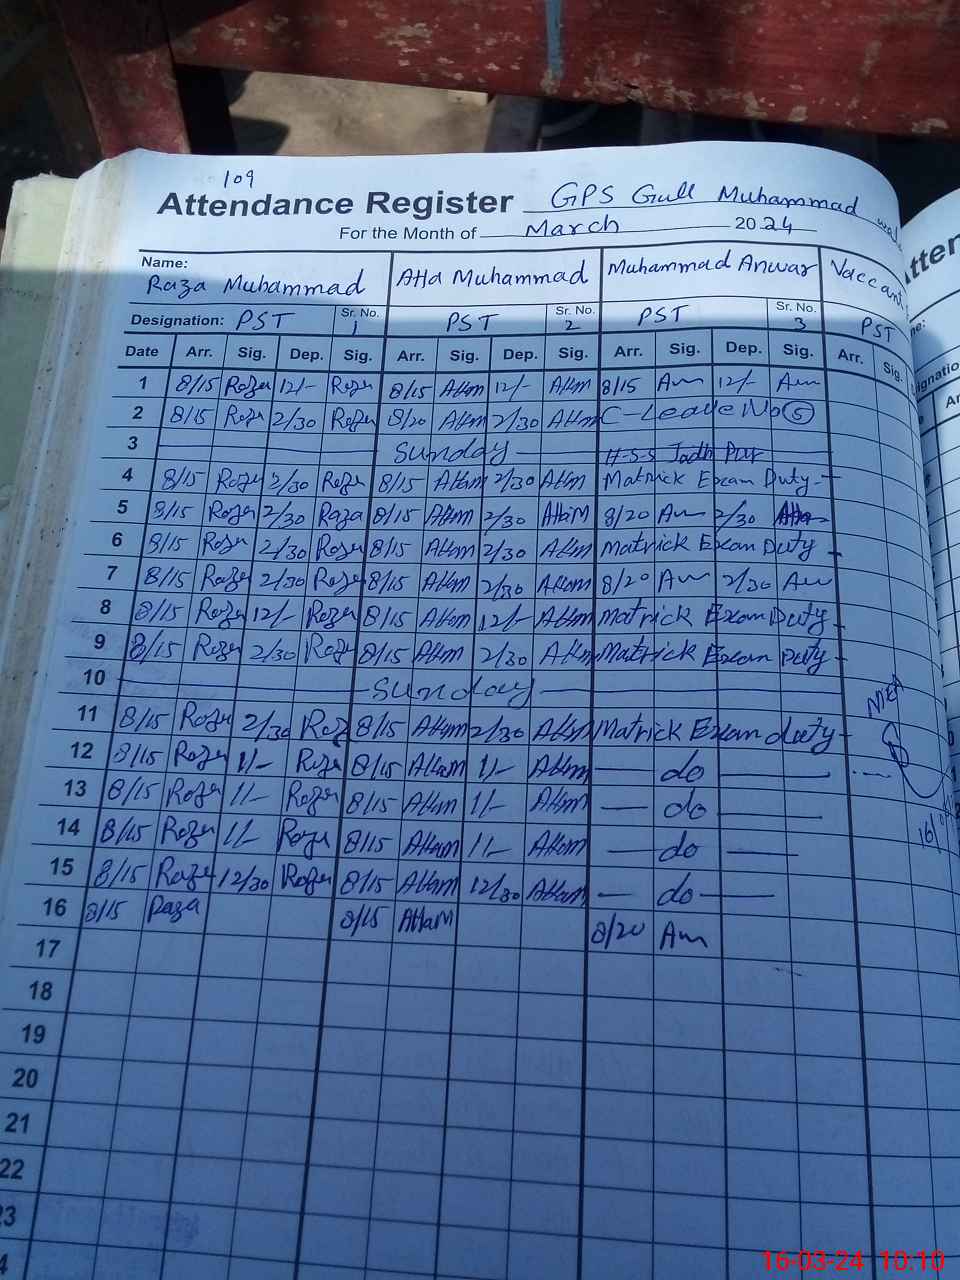 109
Attendance Register GPS Gull Muhammad
For the Month of March 2024
Name: Raza Muhammad Atta Muhammad Muhammad Anwar Vaccant
Designation: PST Sr. No. 1 PST Sr. No. 2 PST Sr. No. 3 PST
Date Arr. Sig. Dep. Sig. Arr. Sig. Dep. Sig. Arr. Sig. Dep. Sig. Arr. Sig.
1 8/15 Raza 12/- Raza 8/15 Attam 12/- Attam 8/15 Am 12/- Am
2 8/15 Raza 2/30 Raza 8/20 Attam 2/30 Attam C-Leave No 5
3 Sunday H-S-S Jodh Pur
4 8/15 Raza 2/30 Raza 8/15 Attam 2/30 Attam Matrick Exam Duty-
5 8/15 Raza 2/30 Raza 8/15 Attam 2/30 Attam 8/20 Am 2/30
6 8/15 Raza 2/30 Raza 8/15 Attam 2/30 Attam Matrick Exam Duty -
7 8/15 Raza 2/30 Raza 8/15 Attam 2/30 Attam 8/20 Am 2/30 Am
8 8/15 Raza 12/- Raza 8/15 Attam 12/- Attam Matrick Exam Duty-
9 8/15 Raza 2/30 Raza 8/15 Attam 2/30 Attam Matrick Exam Duty-
10 Sunday
11 8/15 Raza 2/30 Raza 8/15 Attam 2/30 Attam Matrick Exam duty- MEA
12 8/15 Raza 1/- Raza 8/15 Attam 1/- Attam — do —
13 8/15 Raza 1/- Raza 8/15 Attam 1/- Attam — do —
14 8/15 Raza 1/- Raza 8/15 Attam 1/- Attam — do —
15 8/15 Raza 12/30 Raza 8/15 Attam 12/30 Attam — do —
16 8/15 Raza 8/15 Attam 8/20 Am
17
18
19
20
21
22
16-03-24 10:10